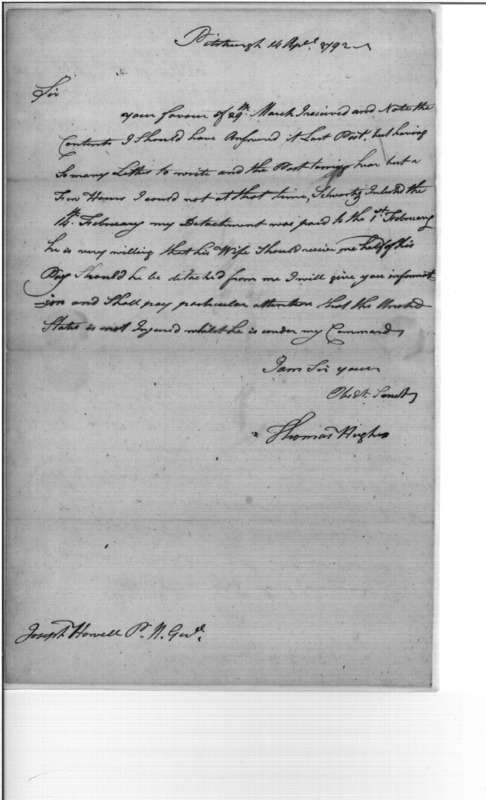 Pittsburgh 14 Aprl. 1792
Sir
your favour of 29th. March I received and Note the
Contents I Should have Answered it Last Post, but having
So many Letters to write and the Post tarrying hear but a
Few Hours I could not at that time, Shwartz Inlisted the
14th. February my Detachment was paid to the 1st. February
he is very willing that his Wife Should receive one half of his
Pay Should he be detached from me I will give you informat-
ion and Shall pay particular attention that the United
States is not Injured whilst he is under my Command
I am Sir your
Obedt. Servt.
Thomas Hughes
Joseph Howell P. M. Genl.